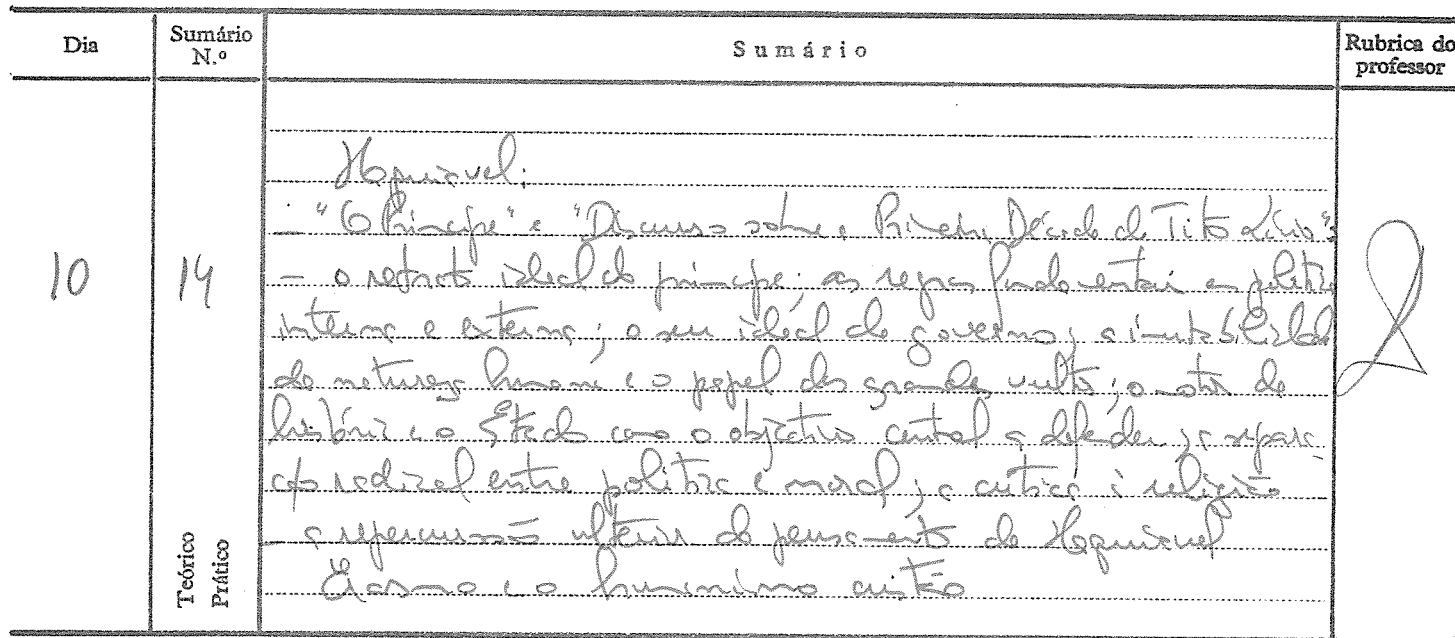 Dia
Sumário N.º
Sumário
Rubrica do professor
10
14
Teórico
Prático
Maquiavel:
- "O Príncipe" e "Discurso sobre a Primeira Década de Tito Lívio"
- o retrato ideal do príncipe; as regras fundamentais em política
interna e externa; o seu ideal de governo; a imutabilidade
da natureza humana e o papel dos grandes vultos; o motor da
história e o Estado como o objectivo central a defender; a separa-
ção radical entre política e moral; a crítica à religião
- a repercussão ulterior do pensamento de Maquiavel
Erasmo e o humanismo cristão